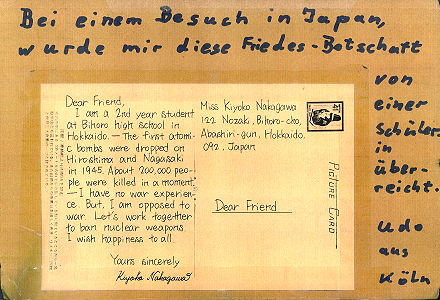 Bei einem Besuch in Japan,
wurde mir diese Friedes-Botschaft
von
einer
Schüler-
in
über-
reicht.
Udo
aus
Köln
Dear Friend,
I am a 2nd year student
at Bihoro high school in
Hokkaido. — The first atomi-
c bombs were dropped on
Hiroshima and Nagasaki
in 1945. About 200,000 peo-
ple were killed in a moment.
— I have no war experien-
ce. But, I am opposed to
war. Let's work together
to ban nuclear weapons.
I wish happiness to all.
Yours sincerely
Kiyoko Nakagawa
Miss Kiyoko Nakagawa
122 Nozaki, Bihoro-cho,
Abashiri-gun, Hokkaido,
092, Japan
Dear Friend
PICTURE CARD